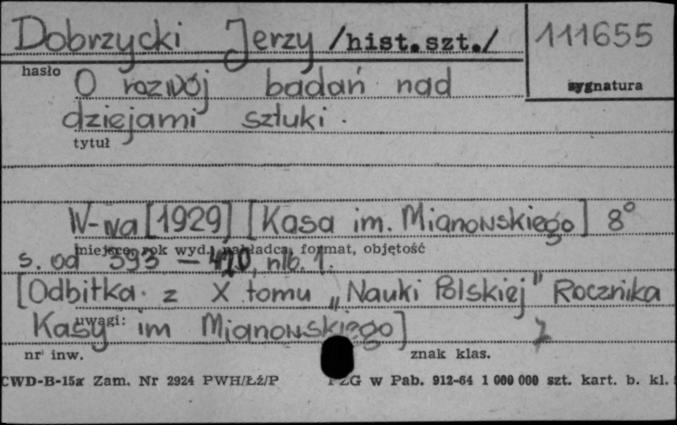 Dobrzycki Jerzy /hist.szt./ 111655
hasło
sygnatura
O rozwój badań nad
dziejami sztuki.
tytuł
W-wa [1929] [Kasa im. Mianowskiego] 8°
miejsce, rok wyd., nakładca, format, objętość
s. od 393 — 420, nlb. 1.
[Odbitka z X tomu „Nauki Polskiej" Rocznika
uwagi:
Kasy im Mianowskiego]
nr inw. znak klas.
CWD-B-15a Zam. Nr 2924 PWH/Łź/P PZG w Pab. 912-64 1 000 000 szt. kart. b. kl.